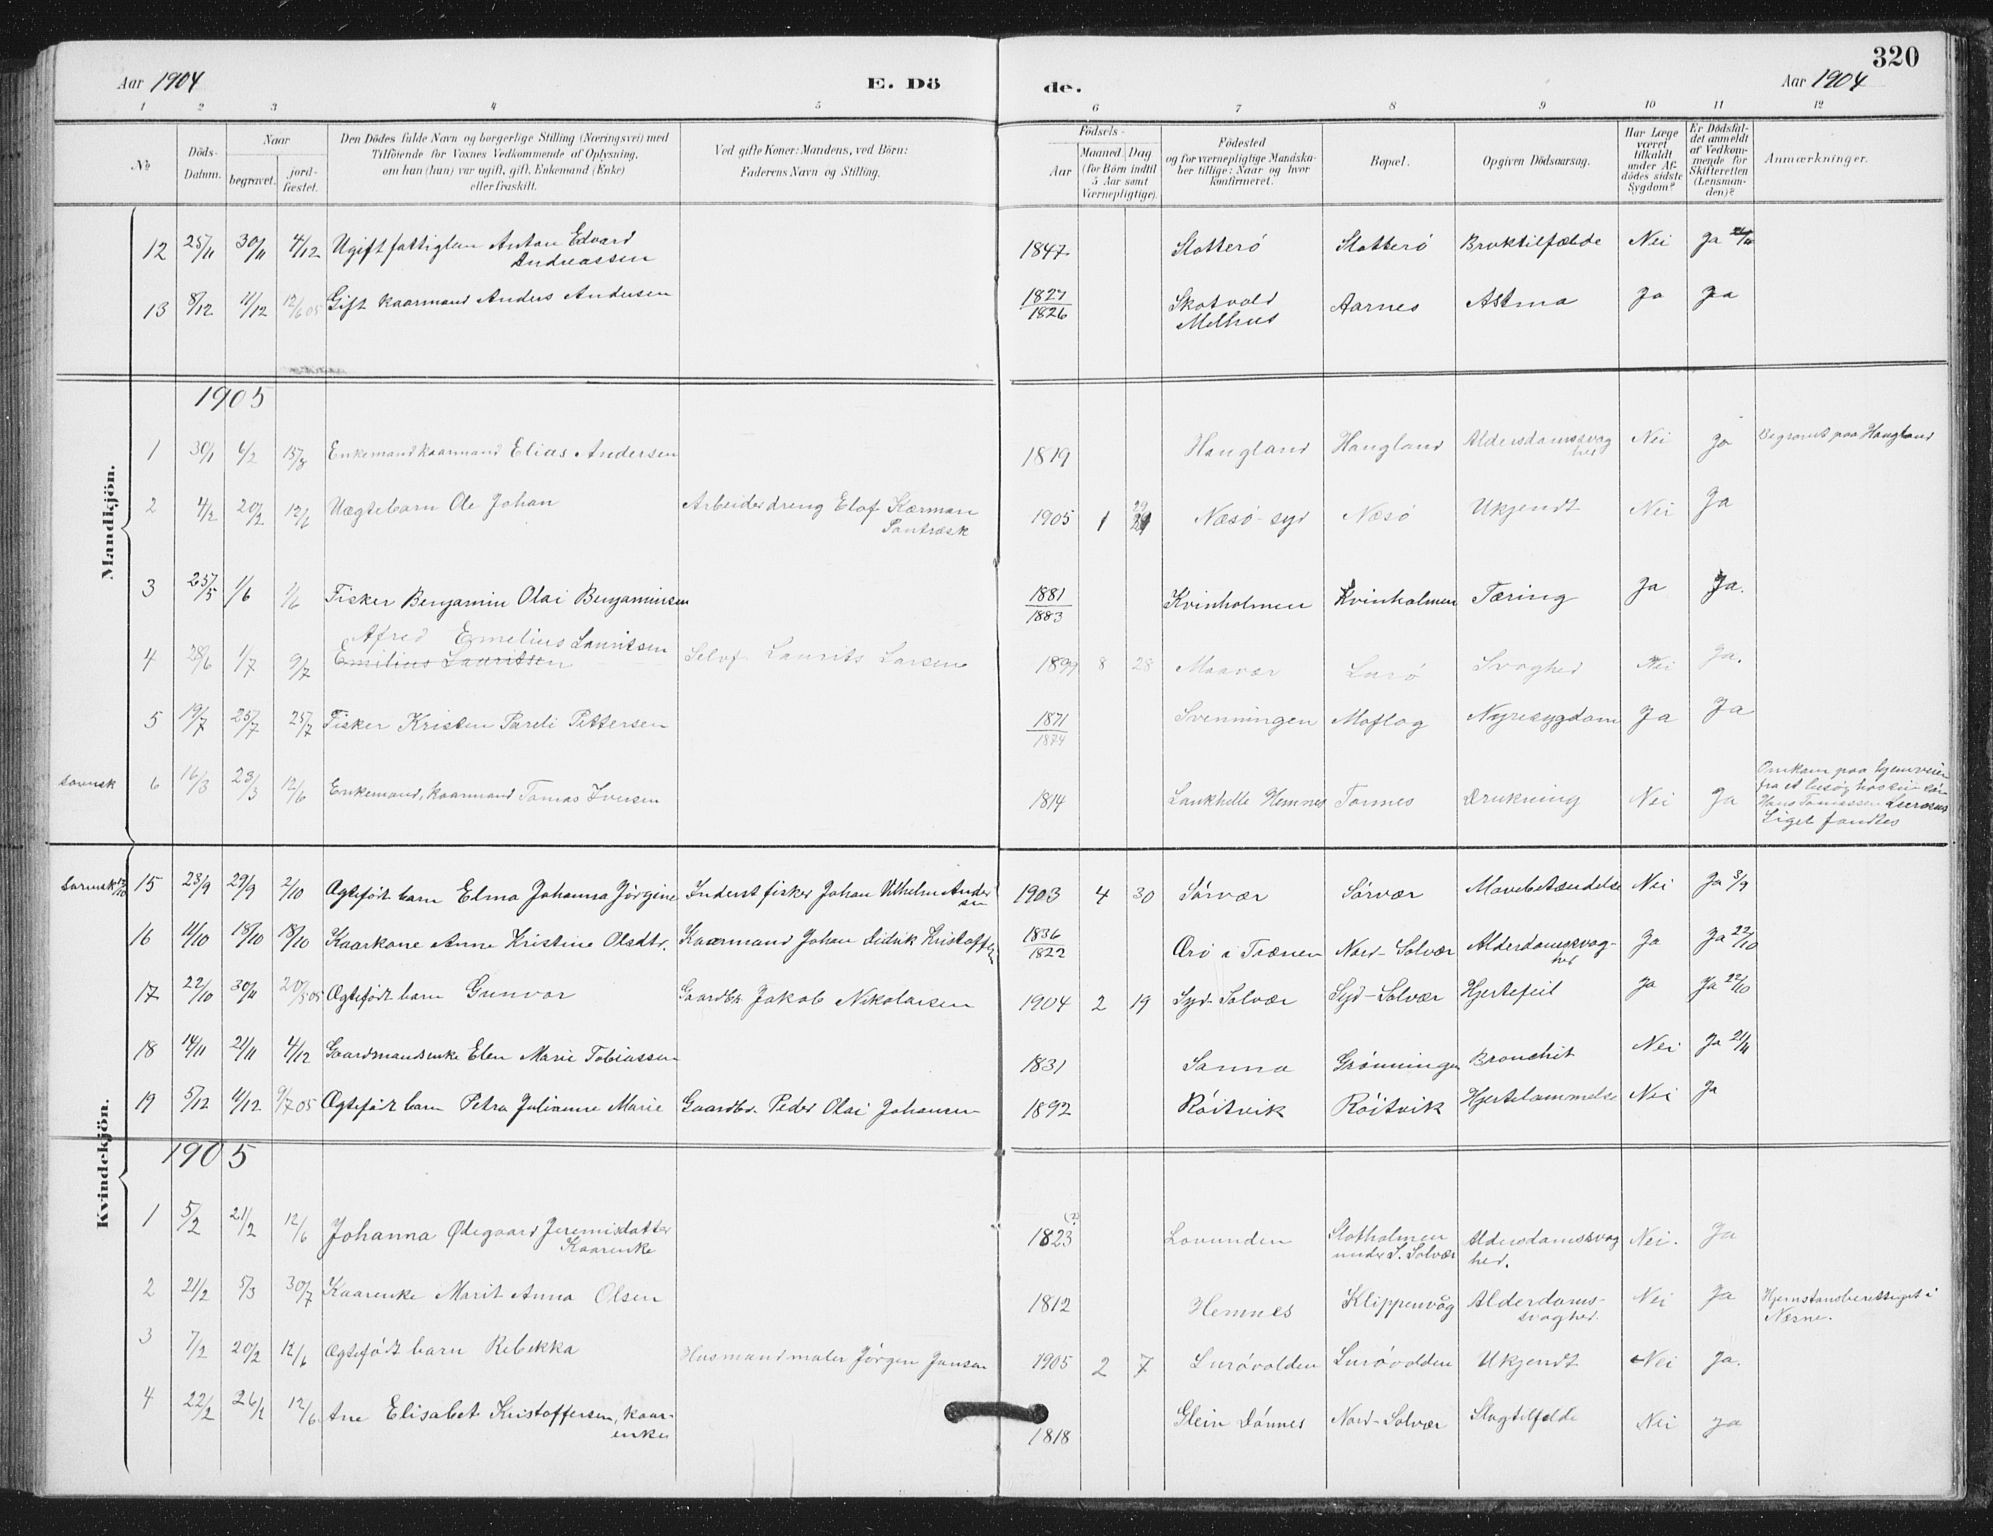 320
Aar 1904 E. Dö de. Aar 1904
1 2 3 4 5 6 7 8 9 10 11 12
No
Döds-Datum.
Naar
begravet.
jord-fæstet.
Den Dödes fulde Navn og borgerlige Stilling (Næringsvei) med
Tilföiende for Voxnes Vedkommende af Oplysning,
om han (hun) var ugift, gift, Enkemand (Enke)
eller fraskilt.
Ved gifte Koner: Mandens, ved Börn:
Faderens Navn og Stilling.
Födsels-
Aar
Maaned. Dag
(for Börn indtil
5 Aar samt
Værnepligtige).
Födested
og for værnepligtige Mandska-
ber tillige: Naar og hvor
konfirmeret.
Bopæl.
Opgiven Dödsaarsag.
Har Læge
været
tilkaldt
under Af-
dödes sidste
Sygdom?
Er Dödsfal-
det anmeldt
af Vedkom-
mende for
Skifteretten
(Lensman-
den)?
Anmærkninger.
Mandkjön.
12 25/11 30/11 4/12 Ugift fattiglem Anton Edvard Andreassen 1847 Slotterö Slotterö Broktilfælde Nei Ja
13 8/12 11/12 12/6 05 Gift kaarmand Anders Andersen 1827/1826 Skotvold Melhus Aarnes Astma Ja Ja
1905
1 30/1 6/2 15/8 Enkemand kaarmand Elias Andersen 1819 Haugland Haugland Alderdomssvaghed Nei Ja Begravet paa Haugland
2 4/2 20/2 12/6 Uægtebarn Ole Johan Arbeiderdreng Elof Kærman Santræsk 1905 1 29 Næsö syd Næsö Ukjendt Nei Ja
3 25/5 1/6 1/6 Fisker Benjamin Olai Benjaminsen 1881/1883 Kvinholmen Kvinholmen Tæring Ja Ja.
4 28/6 1/7 9/7 Afred Emelius Lauritsen
Emilius Lauritsen Selvf Laurits Larsen 1899 8 28 Maavær Lurö Svaghed Nei Ja.
5 19/7 25/7 25/7 Fisker Kristen Pareli Pettersen 1871/1874 Svenningen Moflag Nyresygdom Ja Ja
6 16/3 23/3 12/6 Enkemand, kaarmand Tomas Iversen 1814 Hemnes Tonnes Drukning Nei Ja Omkom paa hjemveien
fra et besög hos sin sön
Hans Tomassen
Liget fandtes
Kvindekjön.
15 23/9 29/9 2/10 Ægtefödt barn Elma Johanna Jörgine Inderst fisker Johan Vilhelm Andersen 1903 4 30 Sörvær Sörvær Mavebetændelse Nei Ja 3/9
16 11/10 18/10 18/10 Kaarkone Anne Kristine Olsdtr. Kaarmand Johan Didrik Kristoffs 1836/1822 Örö i Trænen Nord-Solvær Alderdomssvaghed Ja Ja 22/10
17 22/10 30/11 20/5 05 Ægtefödt barn Gunvor Gaardbr. Jakob Nikolaisen 1904 2 19 Syd-Solvær Syd-Solvær Hjertefeil Ja Ja 22/10
18 14/11 21/11 4/12 Gaardmandsenke Elen Marie Tobiassen 1831 Sanna Grönningen Bronchit Nei Ja 21/11
19 5/12 11/12 9/7 05 Ægtefödt barn Petra Julianne Marie Gaardbr. Peder Olai Johansen 1892 Röitvik Röitvik Hjertelammelse Nei Ja
1905
1 5/2 21/2 12/6 Johanna Ødegaard Jeremisdatter Kaarenke 1823 (?) Lovunden Slotholmen under S. Solvær Alderdomssvaghed. Nei. Ja
2 21/2 5/3 30/7 Kaarenke Marit Anna Olsen 1812 Hemnes Klippenvåg Alderdoms-svaghed. Nei Ja Hjemstansberettiget i
Nesne.
3 7/2 20/2 12/6 Ægtefödt barn Rebekka Husmand maler Jörgen Jansen 1905 2 7 Lurövolden Lurövolden Ukjendt Nei Ja.
4 22/2 26/2 12/6 Ane Elisabet Kristoffersen, kaar-enke 1818 Glein Dönnes Nord-Solvær Slagtilfælde Nei Ja